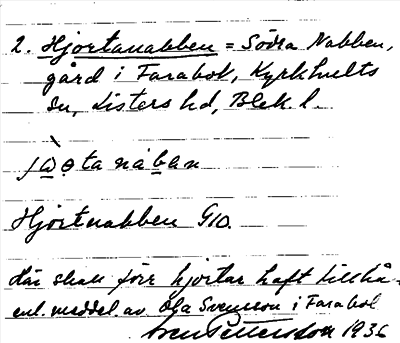 2. Hjortanabben = Södra Nabben,
gård i Farabol, Kyrkhults
sn, Listers hd, Blek. l.
Hjortnabben GlO.
Här skall förr hjortar haft tillhå-
enl. meddel. av Ola Svensson i Farabol
Sven Pettersson 1936